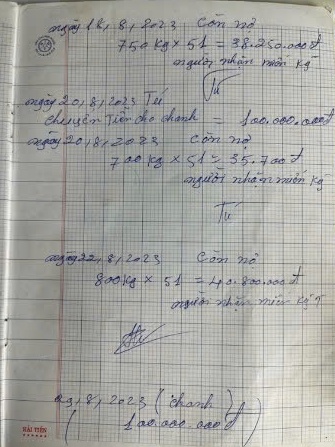 ngày 18, 8, 2023 còn nợ
750 kg x 51 = 38.250.000đ
người nhận miến kg
Tú
ngày 20, 8, 2023 Tú
chuyển tiền cho chanh = 100.000.000đ
ngày 20, 8, 2023 còn nợ
700 kg x 51 = 35.700đ
người nhận miến kg
Tú
ngày 22, 8, 2023 còn nợ
800 kg x 51 = 40.800.000đ
người nhận miến kg
29, 8, 2023 (chanh)
(100.000.000đ)
HẢI TIẾN